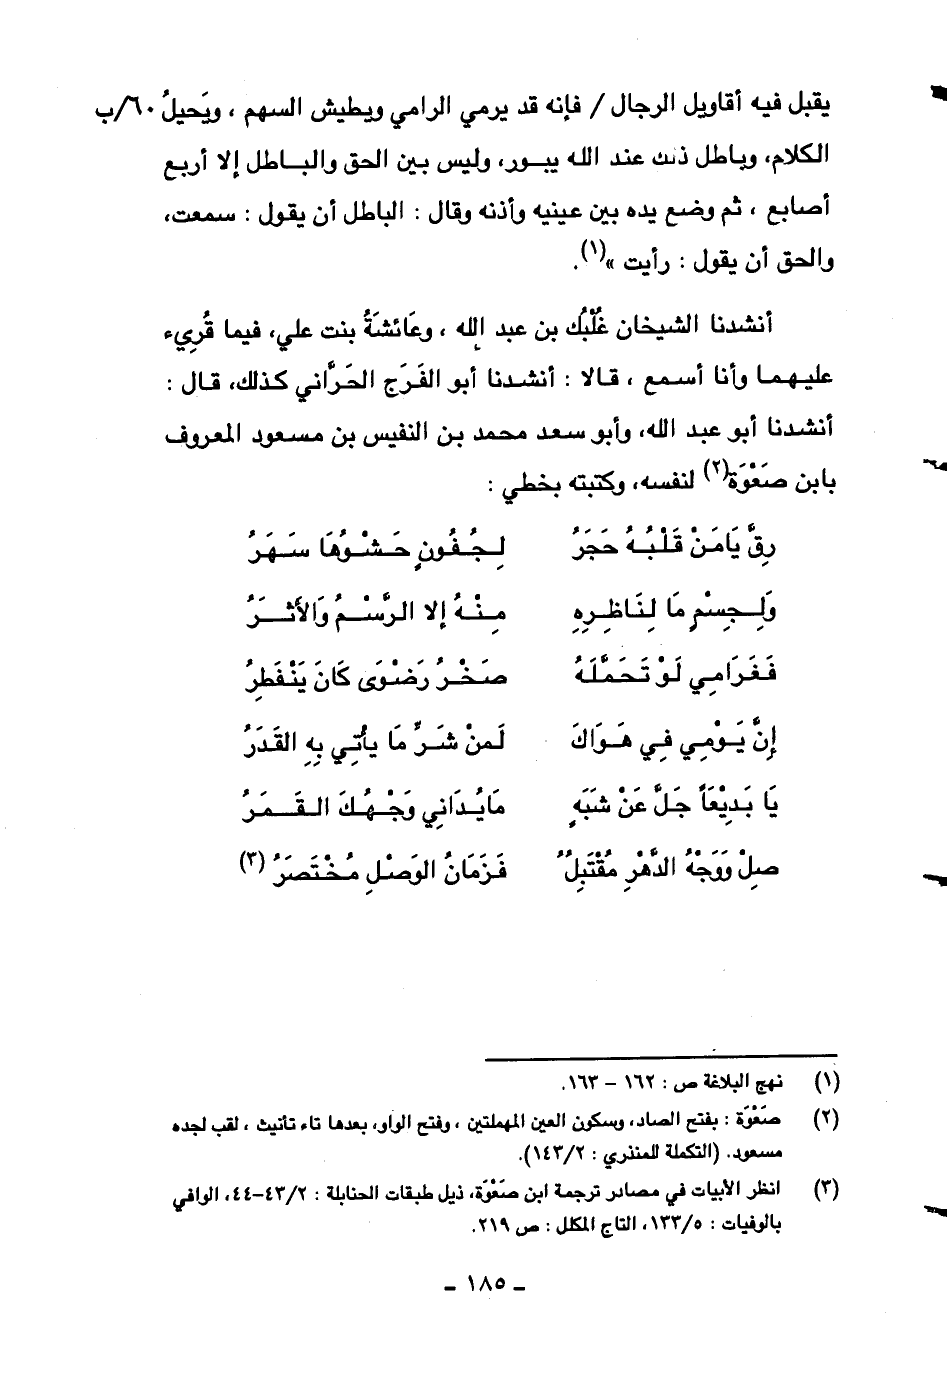 يقبل فيه أقاويل الرجال / فإنه قد يرمي الرامي ويطيش السهم ، ويَحيلُ ٦٠/ب
الكلام، وباطل ذلك عند الله يبور، وليس بين الحق والباطل إلا أربع
أصابع ، ثم وضع يده بين عينيه وأذنه وقال : الباطل أن يقول : سمعت،
والحق أن يقول : رأيت »(١).
أنشدنا الشيخان غُلْبُك بن عبد الله ، وعَائشَةُ بنت علي، فيما قُرِيء
عليهما وأنا أسمع ، قالا : أنشدنا أبو الفَرَج الحَرَّاني كذلك، قال :
أنشدنا أبو عبد الله، وأبو سعد محمد بن النفيس بن مسعود المعروف
بابن صَعْوَة(٢) لنفسه، وكتبته بخطي :
رِقَّ يَامَنْ قَلْبُهُ حَجَرُ لِجُفُونٍ حَشْوُهَا سَهَرُ
وَلِجِسْمٍ مَا لِنَاظِرِهِ مِنْهُ إلا الرَّسْمُ وَالأثَرُ
فَغَرَامِي لَوْ تَحَمَّلَهُ صَخْرُ رَضْوَى كَانَ يَنْفَطِرُ
إنَّ يَوْمِي فِي هَوَاكَ لَمنْ شَرِّ مَا يأتِي بِهِ القَدَرُ
يَا بَدِيْعَاً جَلَّ عَنْ شَبَهٍ مَايُدَانِي وَجْهُكَ القَمَرُ
صِلْ وَوَجْهُ الدَّهْرِ مُقْتَبِلٌ فَزَمَانُ الوَصْلِ مُخْتَصَرُ (٣)
(١) نهج البلاغة ص : ١٦٢ – ١٦٣.
(٢) صَعْوَة : بفتح الصاد، وسكون العين المهملتين ، وفتح الواو، بعدها تاء تأنيث ، لقب لجده
مسعود. (التكملة للمنذري : ١٤٣/٢).
(٣) انظر الأبيات في مصادر ترجمة ابن صَعْوَة، ذيل طبقات الحنابلة : ٤٣/٢–٤٤، الوافي
بالوفيات : ١٣٣/٥، التاج المكلل : ص ٢١٩.
ـ ١٨٥ ـ